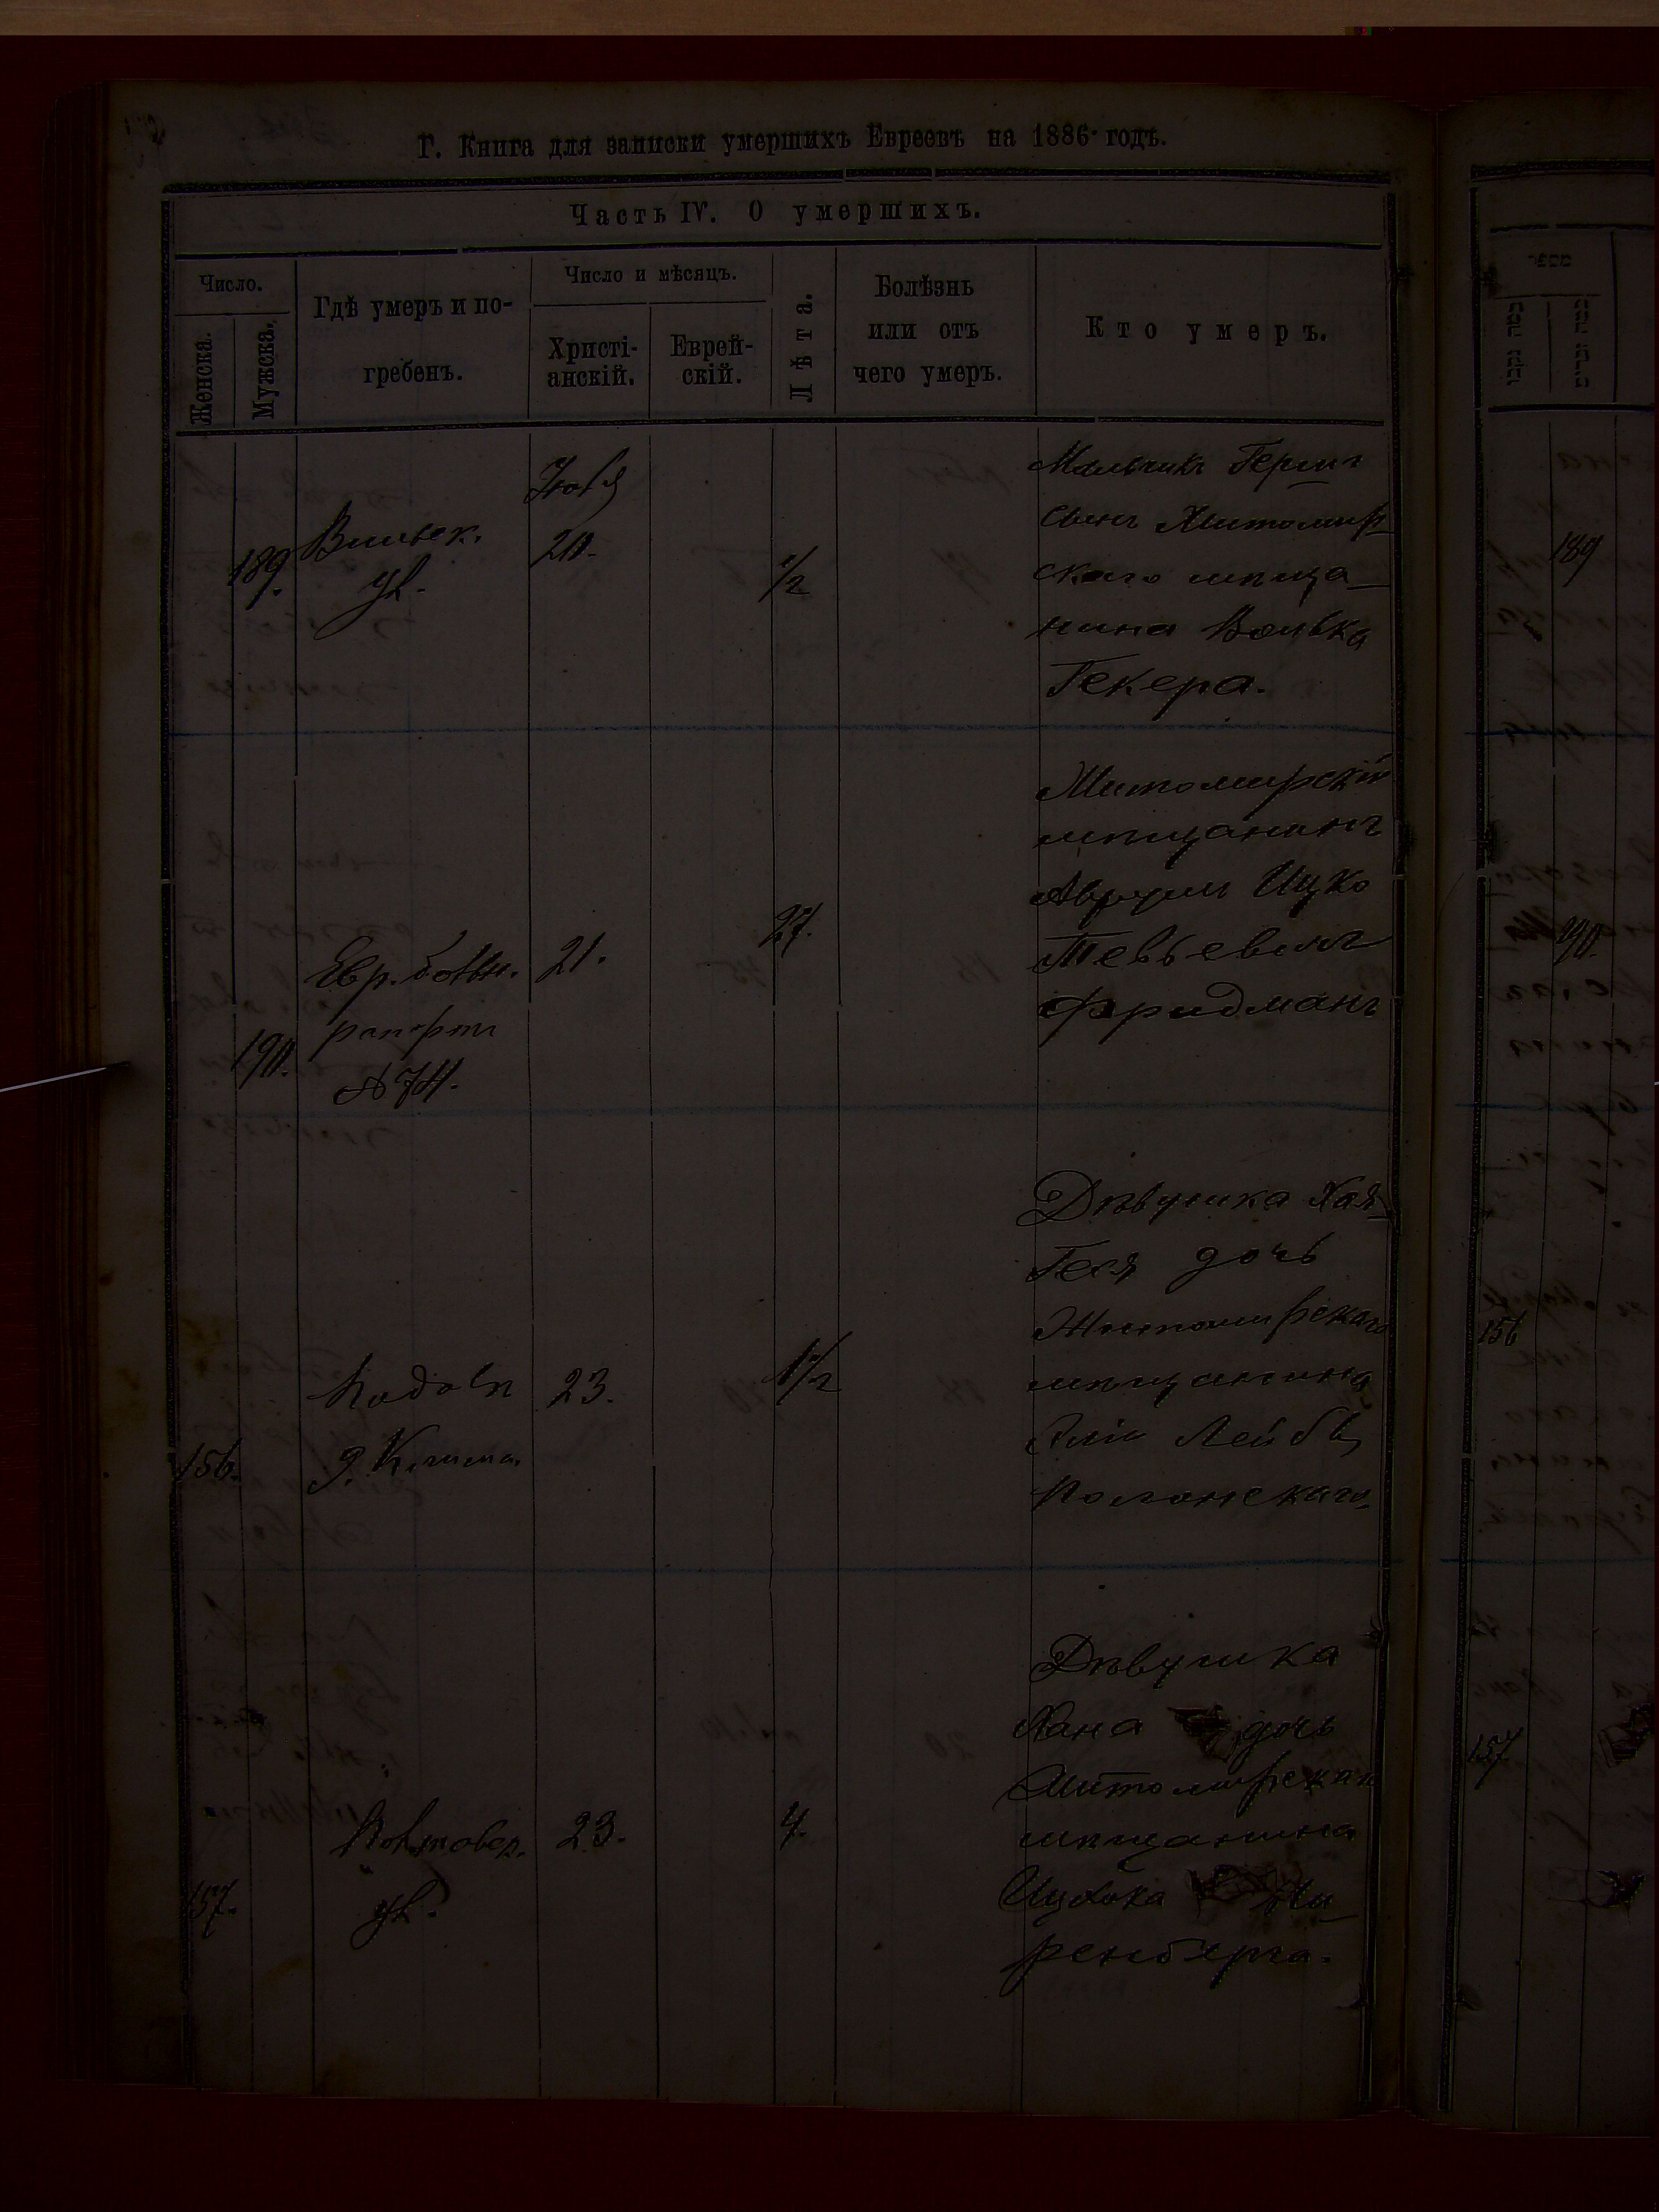 Г. Книга для записки умершихъ Евреевъ на 1886 годъ.
Часть IV. О умершихъ.
Число.
Женска.
Мужска.
Гдѣ умеръ и по-
гребенъ.
Число и мѣсяцъ.
Христі-
анскій.
Еврей-
скій.
Лѣта.
Болѣзнь
или отъ
чего умеръ.
Кто умеръ.
מספר
189.
ул.
20.
1/2
Мальчикъ Гершъ
сынъ Житомир
скаго мѣща
нина Волька
Гекера.
189
190.
Евр. больн.
рапортъ
21.
27.
Житомирскій
мѣщанинъ
Аврумъ Ицко
Тевьевичъ
Фридманъ
190.
156.
23.
1 1/2
Дѣвушка Хая
Геся дочь
Житомирскаго
мѣщанина
Лейбы
Полонскаго
156
157.
ул.
23.
4.
Дѣвушка
Хана дочь
Житомирскаго
мѣщанина
Ицхока Ни
ренберга.
157